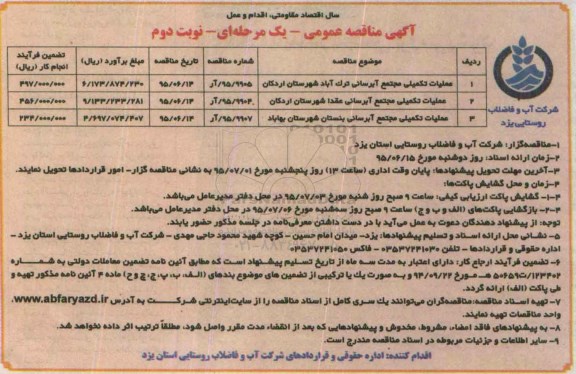 سال اقتصاد مقاومتی، اقدام و عمل
آگهی مناقصه عمومی - یک مرحله‌ای - نوبت دوم
ردیف موضوع مناقصه شماره مناقصه تاریخ مناقصه مبلغ برآورد (ریال) تضمین فرآیند انجام کار (ریال)
۱ عملیات تکمیلی مجتمع آبرسانی ترک آباد شهرستان اردکان ۹۵/۹۹۰۵/آر ۹۵/۰۶/۱۴ ۶/۱۷۳/۸۷۴/۲۳۰ ۴۹۷/۰۰۰/۰۰۰
۲ عملیات تکمیلی مجتمع آبرسانی عقدا شهرستان اردکان ۹۵/۹۹۰۴/آر ۹۵/۰۶/۱۴ ۹/۱۳۳/۲۳۳/۲۸۱ ۴۵۶/۰۰۰/۰۰۰
۳ عملیات تکمیلی مجتمع آبرسانی بنستان شهرستان بهاباد ۹۵/۹۹۰۷/آر ۹۵/۰۶/۱۴ ۴/۶۹۷/۰۷۴/۴۰۷ ۲۳۴/۰۰۰/۰۰۰
شرکت آب و فاضلاب
روستایی یزد
۱-مناقصه‌گزار: شرکت آب و فاضلاب روستایی استان یزد
۲-زمان ارائه اسناد: روز دوشنبه مورخ ۹۵/۰۶/۱۵
۳-آخرین مهلت تحویل پیشنهادها: پایان وقت اداری (ساعت ۱۳) روز پنجشنبه مورخ ۹۵/۰۷/۰۱ به نشانی مناقصه گزار- امور قراردادها تحویل نمایند.
۴-زمان و محل گشایش پاکت‌ها:
۴-۱- گشایش پاکت ارزیابی کیفی: ساعت ۹ صبح روز شنبه مورخ ۹۵/۰۷/۰۳ در محل دفتر مدیرعامل می‌باشد.
۴-۲- بازگشایی پاکت‌های (الف و ب و ج) ساعت ۹ صبح روز سه‌شنبه مورخ ۹۵/۰۷/۰۶ در محل دفتر مدیرعامل می‌باشد.
توجه: از پیشنهاد دهندگان دعوت به عمل می‌آید با در دست داشتن معرفی‌نامه در جلسه مذکور حضور یابند.
۵- نشانی محل ارائه اسناد و تسلیم پیشنهادها: یزد- میدان امام حسین - کوچه شهید محمود حاجی مهدی - شرکت آب و فاضلاب روستایی استان یزد -
اداره حقوقی و قراردادها - تلفن ۰۳۵۳۷۲۴۱۰۴۰ - فاکس ۰۳۵۳۷۲۴۱۰۵۰
۶- تضمین فرآیند ارجاع کار: دارای اعتبار به مدت سه ماه از تاریخ تسلیم پیشنهاد است که مطابق آئین نامه تضمین معاملات دولتی به شماره
۱۲۳۴۰۲/ت۵۰۶۵۹هـ مورخ ۹۴/۰۹/۲۲ و به صورت یک یا ترکیبی از تضمین های موضوع بندهای (الف، ب، پ، ج، چ و ح) ماده ۴ آئین نامه مذکور تهیه و
طی پاکت (الف) ارائه گردد.
۷- تهیه اسناد مناقصه:مناقصه‌گران می‌توانند یک سری کامل از اسناد مناقصه را از سایت اینترنتی شرکت به آدرس www.abfaryazd.ir
واحد مناقصات تهیه نمایند.
۸- به پیشنهادهای فاقد امضاء، مشروط، مخدوش و پیشنهادهایی که بعد از انقضاء مدت مقرر واصل شود، مطلقاً ترتیب اثر داده نخواهد شد.
۹- سایر اطلاعات و جزئیات مربوطه در اسناد مناقصه مندرج است.
اقدام کننده: اداره حقوقی و قراردادهای شرکت آب و فاضلاب روستایی استان یزد